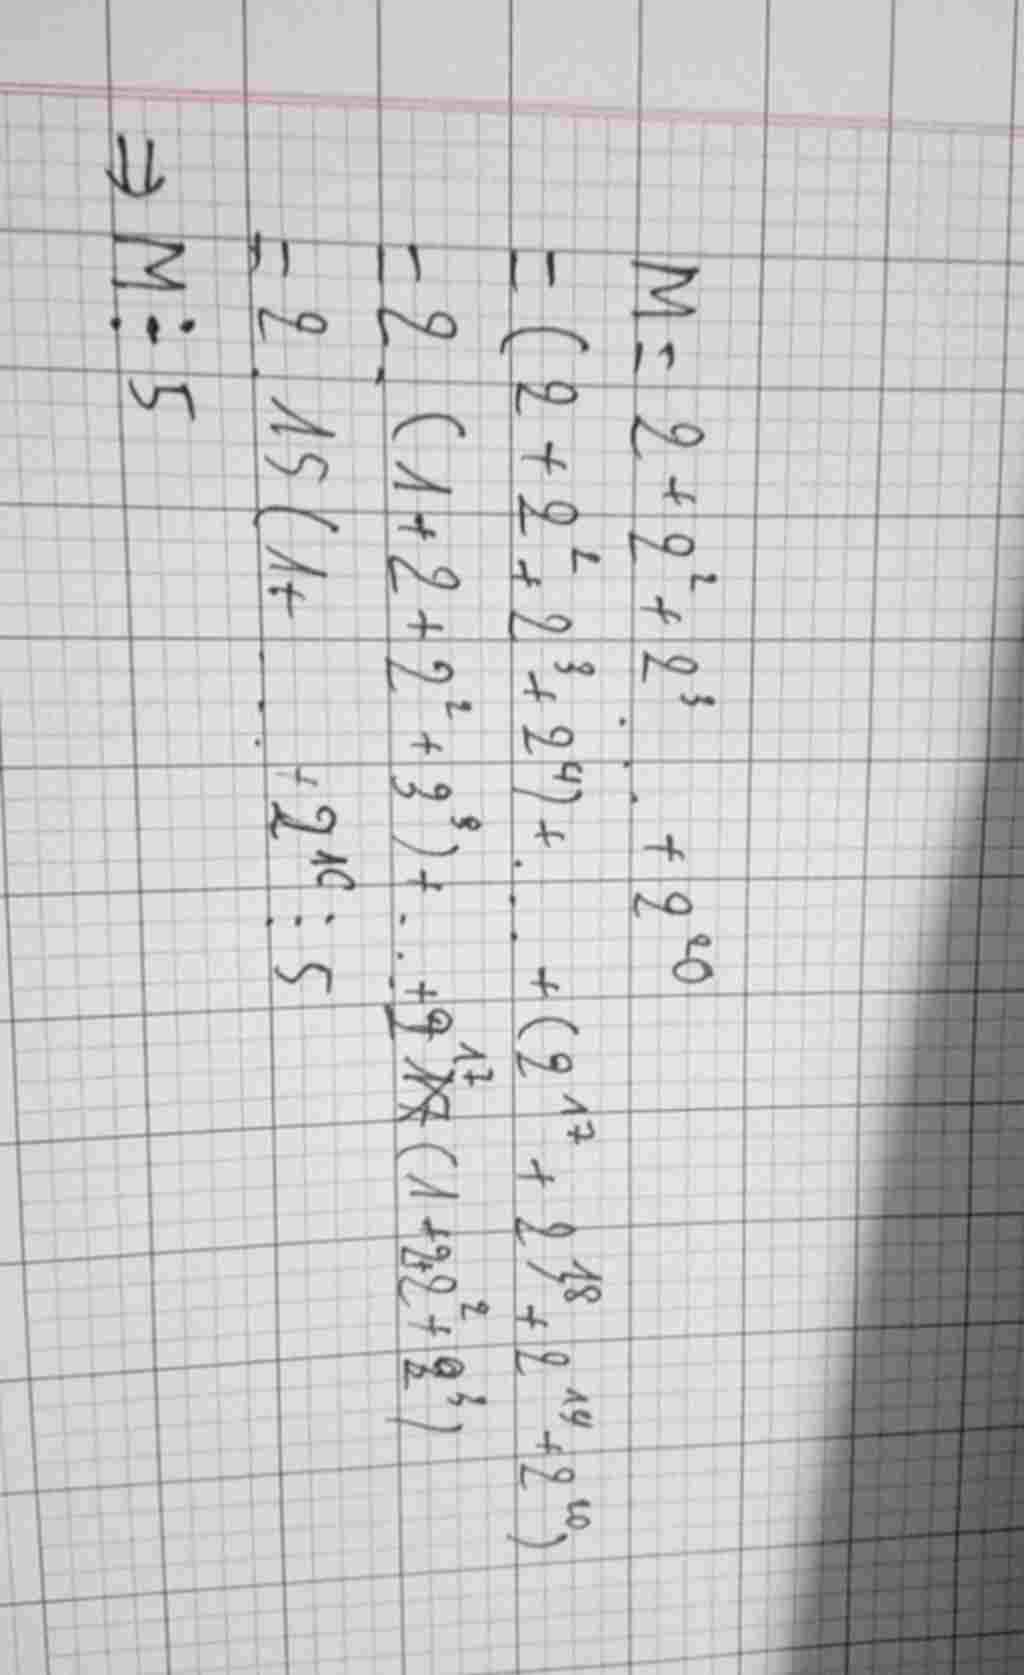 M = 2 + 2² + 2³ ... + 2²⁰
= (2 + 2² + 2³ + 2⁴) + ... + (2¹⁷ + 2¹⁸ + 2¹⁹ + 2²⁰)
= 2. (1 + 2 + 2² + 2³) + ... + 2¹⁷ (1 + 2 + 2² + 2³)
= 2. 15 (1 + ... + 2¹⁶ ⋮ 5
⇒ M ⋮ 5